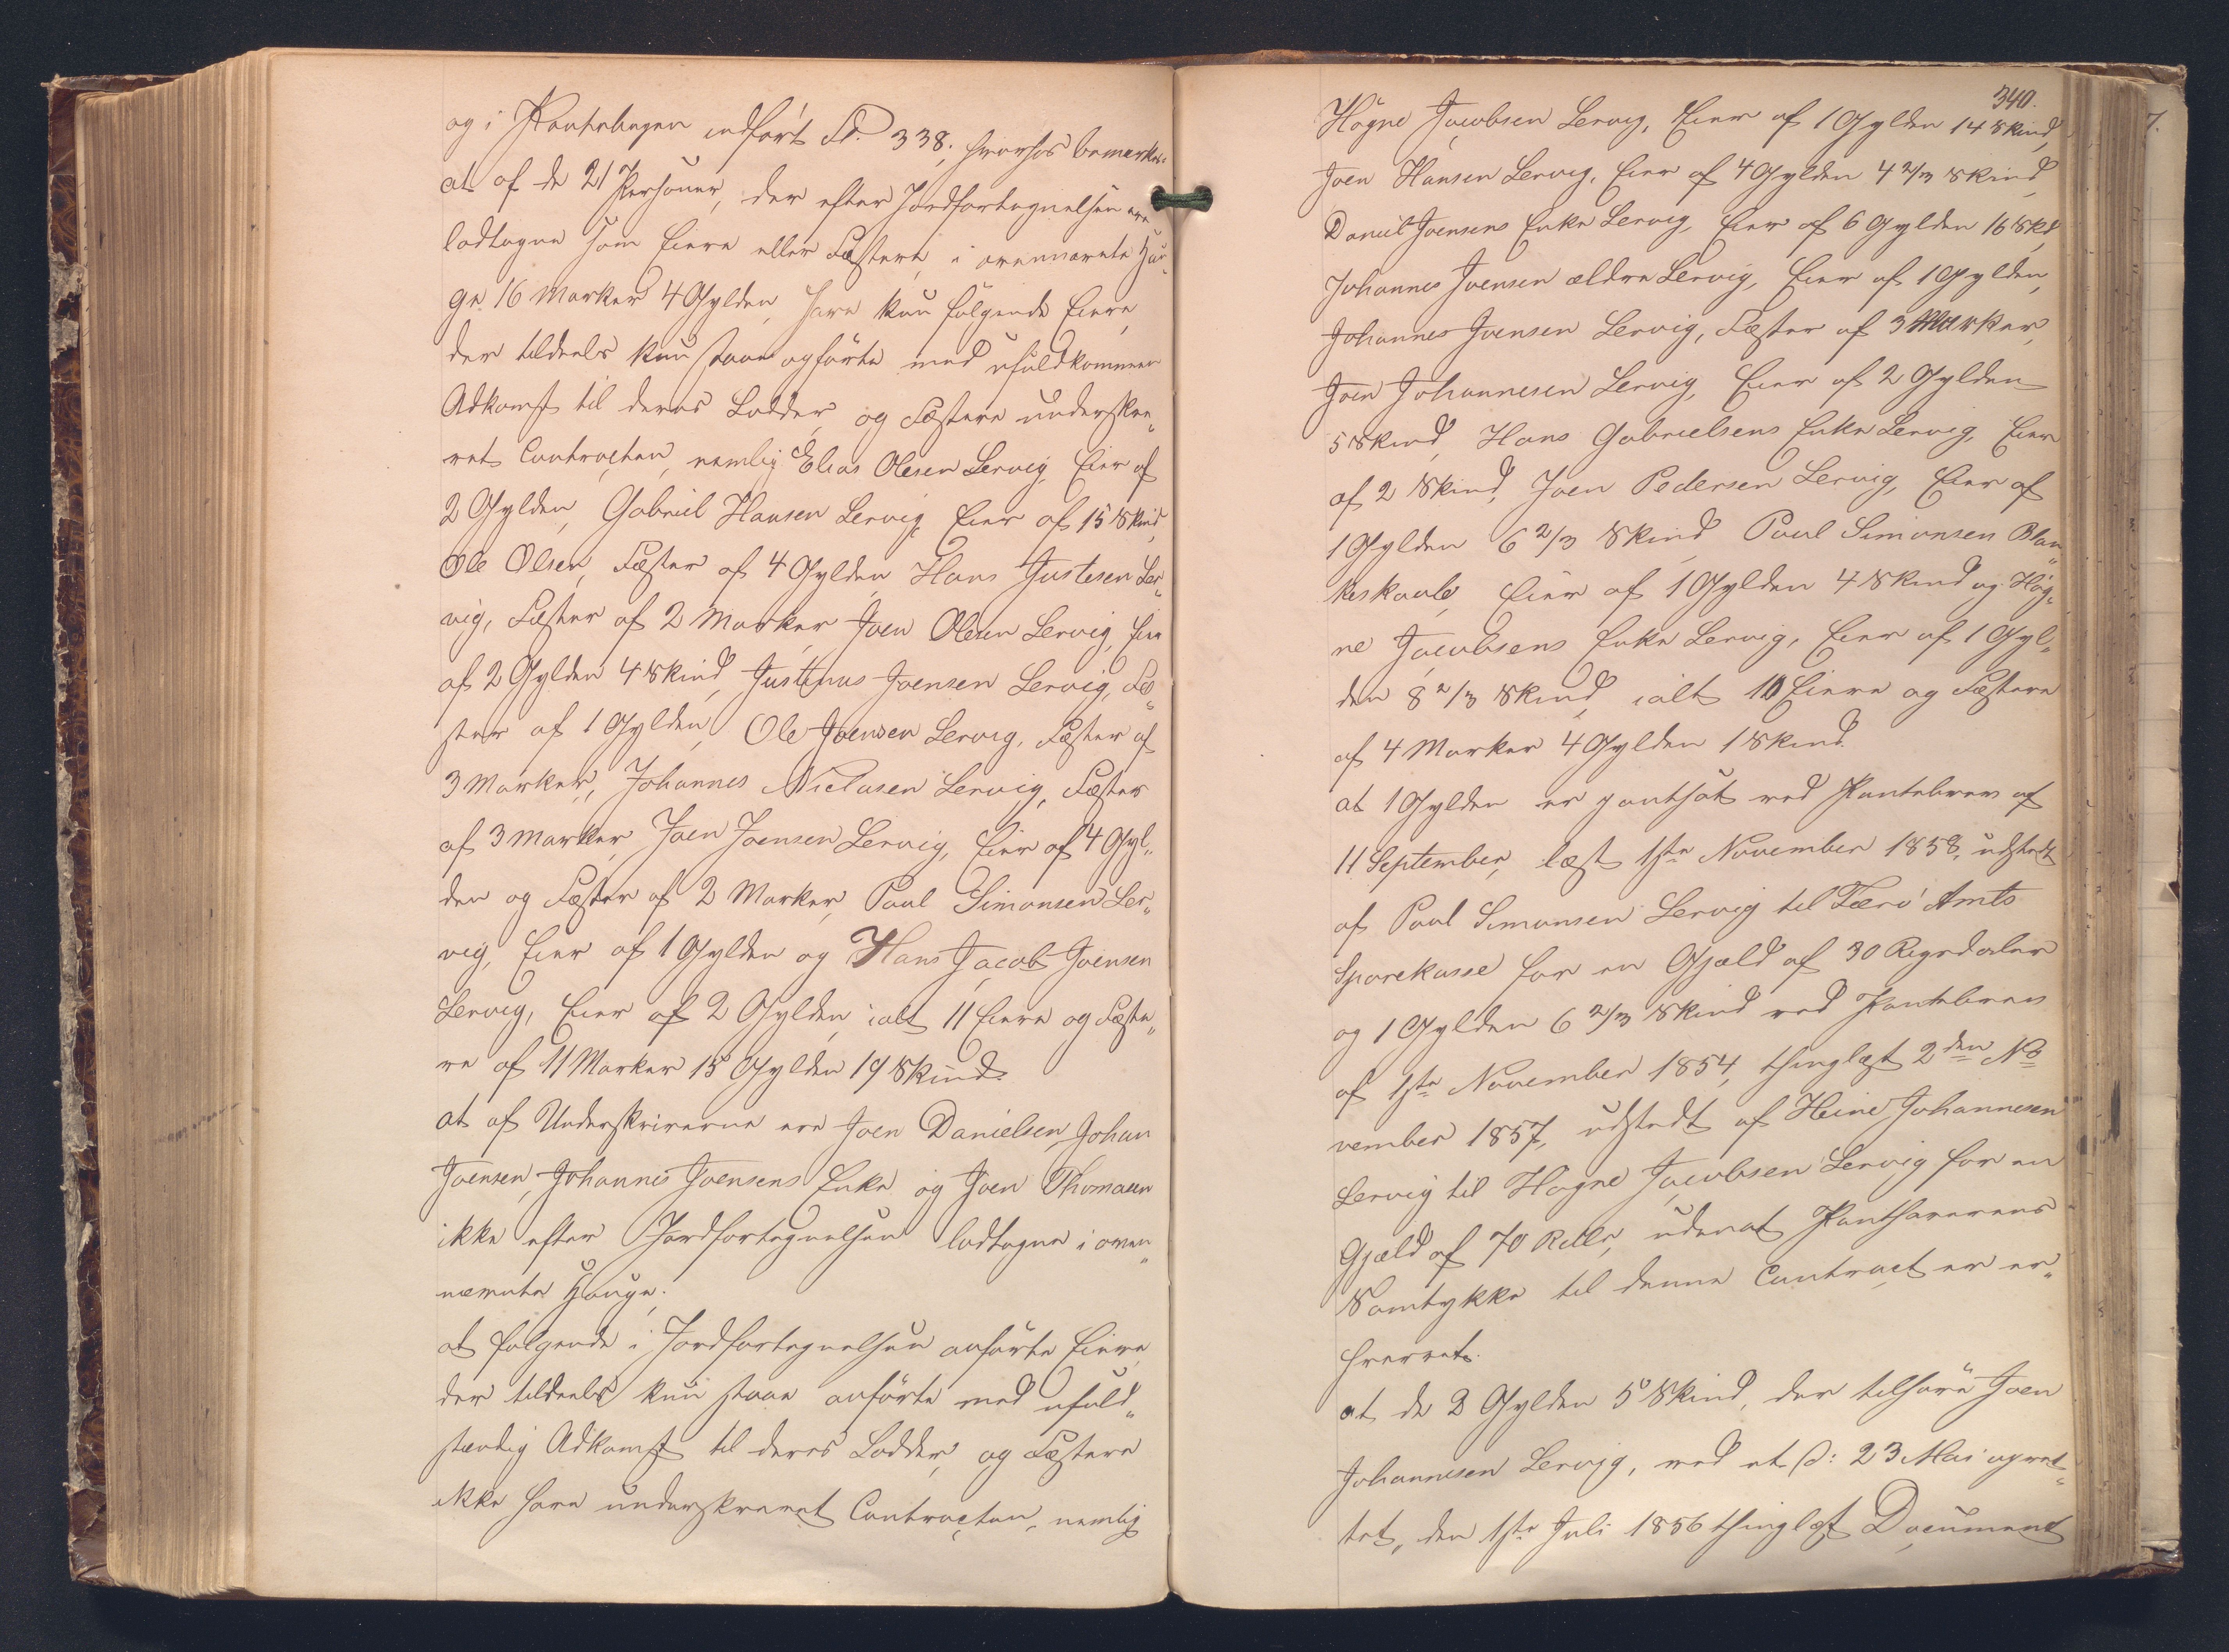 og i Pantebogen indført Fol. 338, hvorhos bemærkes:
at af de 21 Personer, der efter Jordfortegnelsen ere
lodtagne som Eiere eller Fæstere i ovennævnte Hau„
ge 16 Marker 4 Gylden, have kun følgende Eiere,
der tildeels kun staae opførte med ufuldkommen
Adkomst til deres Lodder, og Fæstere underskre„
vet Contracten, nemlig Elias Olesen Lervig, Eier af
2 Gylden, Gabriel Hansen Lervig, Eier af 15 Skind,
Ole Olsen, Fæster af 4 Gylden, Hans Justesen Ler„
vig, Fæster af 2 Marker, Joen Olesen Lervig, Eier
af 2 Gylden 4 Skind, Justinus Joensen Lervig, Fæ„
ster af 1 Gylden, Ole Joensen Lervig, Fæster af
3 Marker, Johannes Niclasen Lervig, Fæster
af 3 Marker, Joen Joensen Lervig, Eier af 4 Gyl„
den og Fæster af 2 Marker, Poul Simonsen Ler„
vig, Eier af 1 Gylden og Hans Jacob Joensen
Lervig, Eier af 2 Gylden, ialt 11 Eiere og Fæste„
re af 11 Marker 15 Gylden 19 Skind.
at af Underskriverne ere Joen Danielsen, Johan
Joensen, Johannes Joensens Enke og Joen Thomasen
ikke efter Jordfortegnelsen lodtagne i oven„
nævnte Hauge.
at følgende i Jordfortegnelsen anførte Eiere,
der tildeels kun staae anførte med ufuld„
stændig Adkomst til deres Lodder, og Fæstere
ikke have underskrevet Contracten, nemlig
340.
Høgne Jacobsen Lervig, Eier af 1 Gylden 14 Skind,
Joen Hansen Lervig, Eier af 4 Gylden 4 2/3 Skind,
Daniel Joensens Enke Lervig, Eier af 6 Gylden 16 Skd,
Johannes Joensen ældre Lervig, Eier af 1 Gylden,
Johannes Joensen Lervig, Fæster af 3 Marker,
Joen Johannesen Lervig, Eier af 2 Gylden
5 Skind, Hans Gabrielsens Enke Lervig, Eier
af 2 Skind, Joen Pedersen Lervig, Eier af
1 Gylden 6 2/3 Skind, Poul Simonsen Blan„
keskaale, Eier af 1 Gylden 4 Skind og Høg„
ne Jacobsens Enke Lervig, Eier af 1 Gyl„
den 8 2/3 Skind, ialt 10 Eiere og Fæstere
af 4 Marker 4 Gylden 1 Skind.
at 1 Gylden er pantsat ved Pantebrev af
11 September, læst 1ste November 1858, udstedt
af Poul Simonsen Lervig til Færø Amts
Sparekasse for en Gjæld af 30 Rigsdaler
og 1 Gylden 6 2/3 Skind ved Pantebrev
af 1ste November 1854, thinglæst 2den No
vember 1857, udstedt af Heine Johannesen
Lervig til Høgne Jacobsen Lervig for en
Gjæld af 70 Rdlr, udenat Panthaverens
Samtykke til denne Contract er er„
hvervet.
at de 2 Gylden 5 Skind, der tilhøre Joen
Johannesen Lervig, ved et d: 23 Mai opret„
tet, den 1ste Juli 1856 thinglæst Document